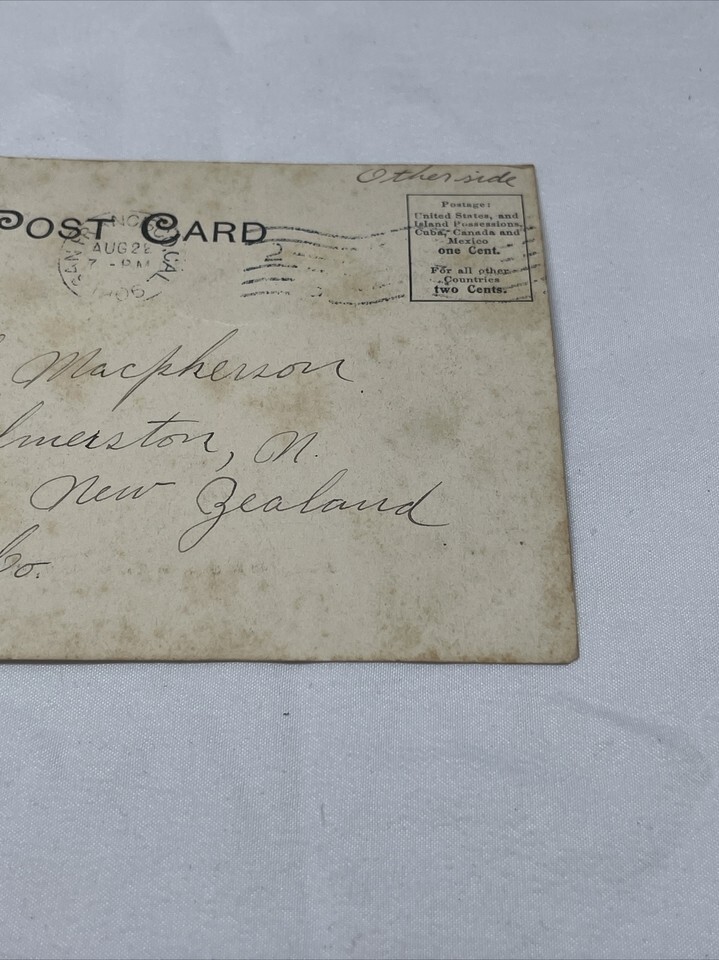 Other side
POST CARD
Postage:
United States, and
Island Possessions,
Cuba, Canada and
Mexico
one Cent.
For all other
Countries
two Cents.
SAN FRANCISCO, CAL
AUG 28
7 - PM
1906
2
Macpherson
lmerston, N.
New Zealand
Co.